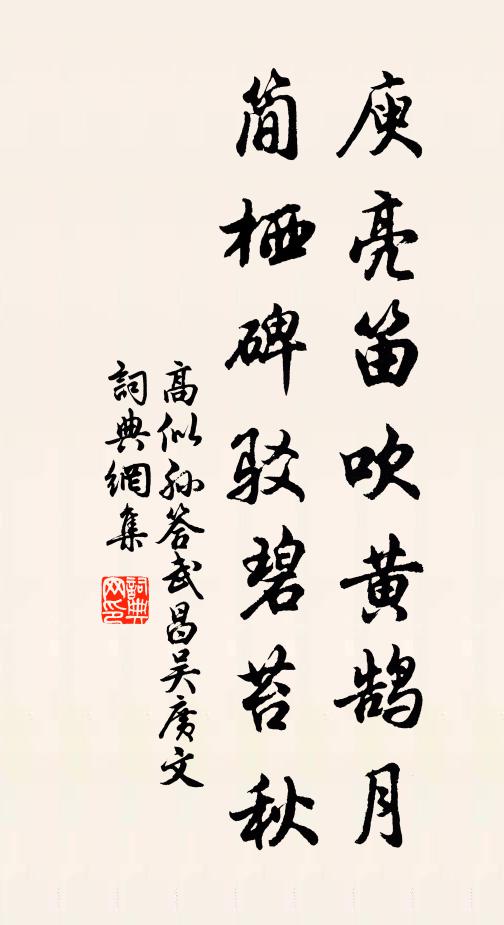 庾亮笛吹黄鹄月
简栖碑驳碧苔秋
高似孙答武昌吴廣文
詞典網集